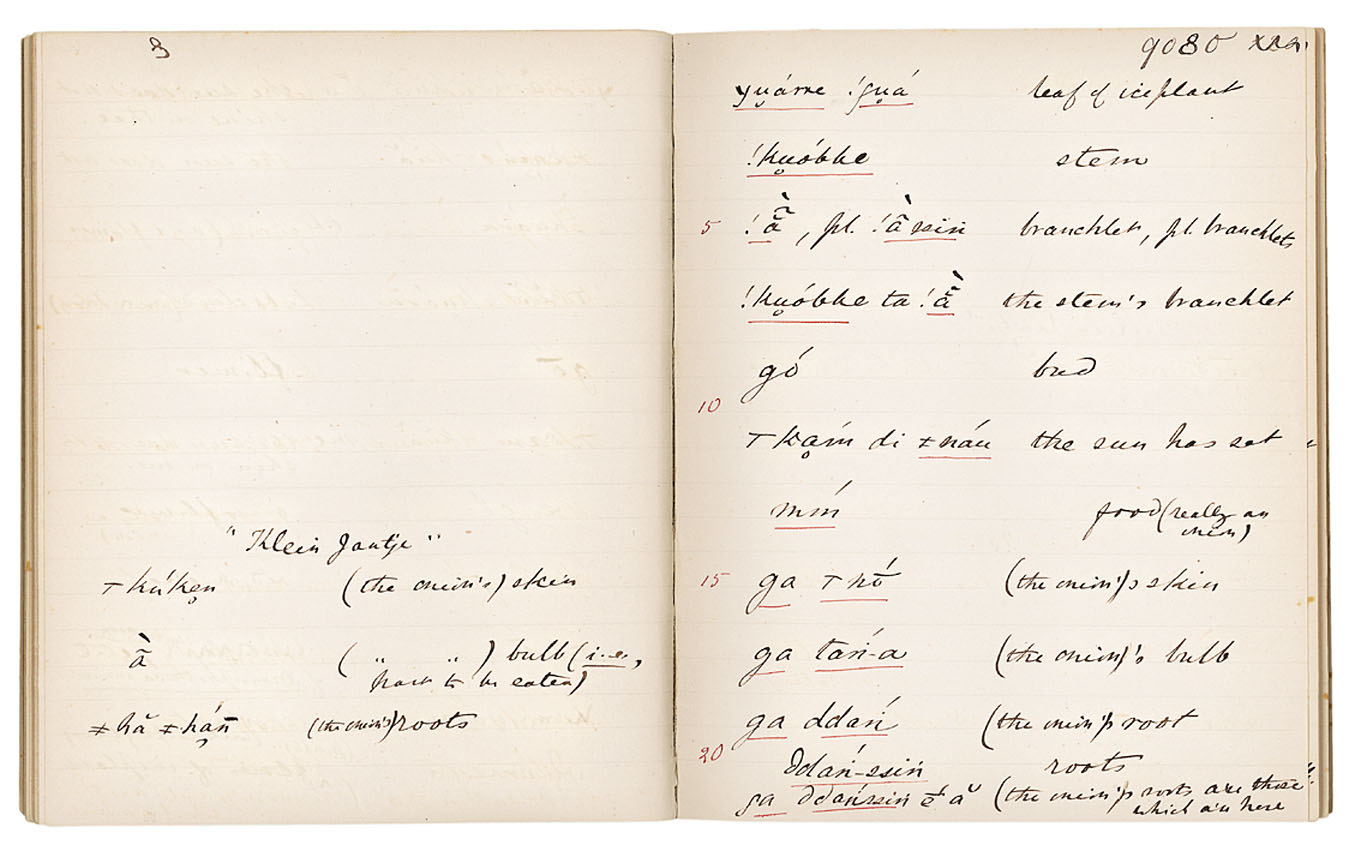 3
"Klein Jantje"
⊤ kúḱe̥n (the onion's) skin
ã̀ ( " " ) bulb (i.e.,
part to be eaten)
≠hă ≠háń̥ (the onion's) roots
9080
yu̥árre !gu̥á leaf of iceplant
!ku̥óbke stem
5 !ã̀, pl. !ã̀ssiń branchlet, pl. branchlets
!ku̥óbke ta !ã̀ the stem's branchlet
gó bud
10
⊤ kḁḿ di ≠náu the sun has set
mḿ food (really an
onion)
15 ga ⊤nṍ (the onion)'s skin
ga tań-a (the onion)'s bulb
ga ddań (the onion)'s root
20 ddań-ssiń roots
ga ddańssiń é ă (the onion)'s roots are those
which are here